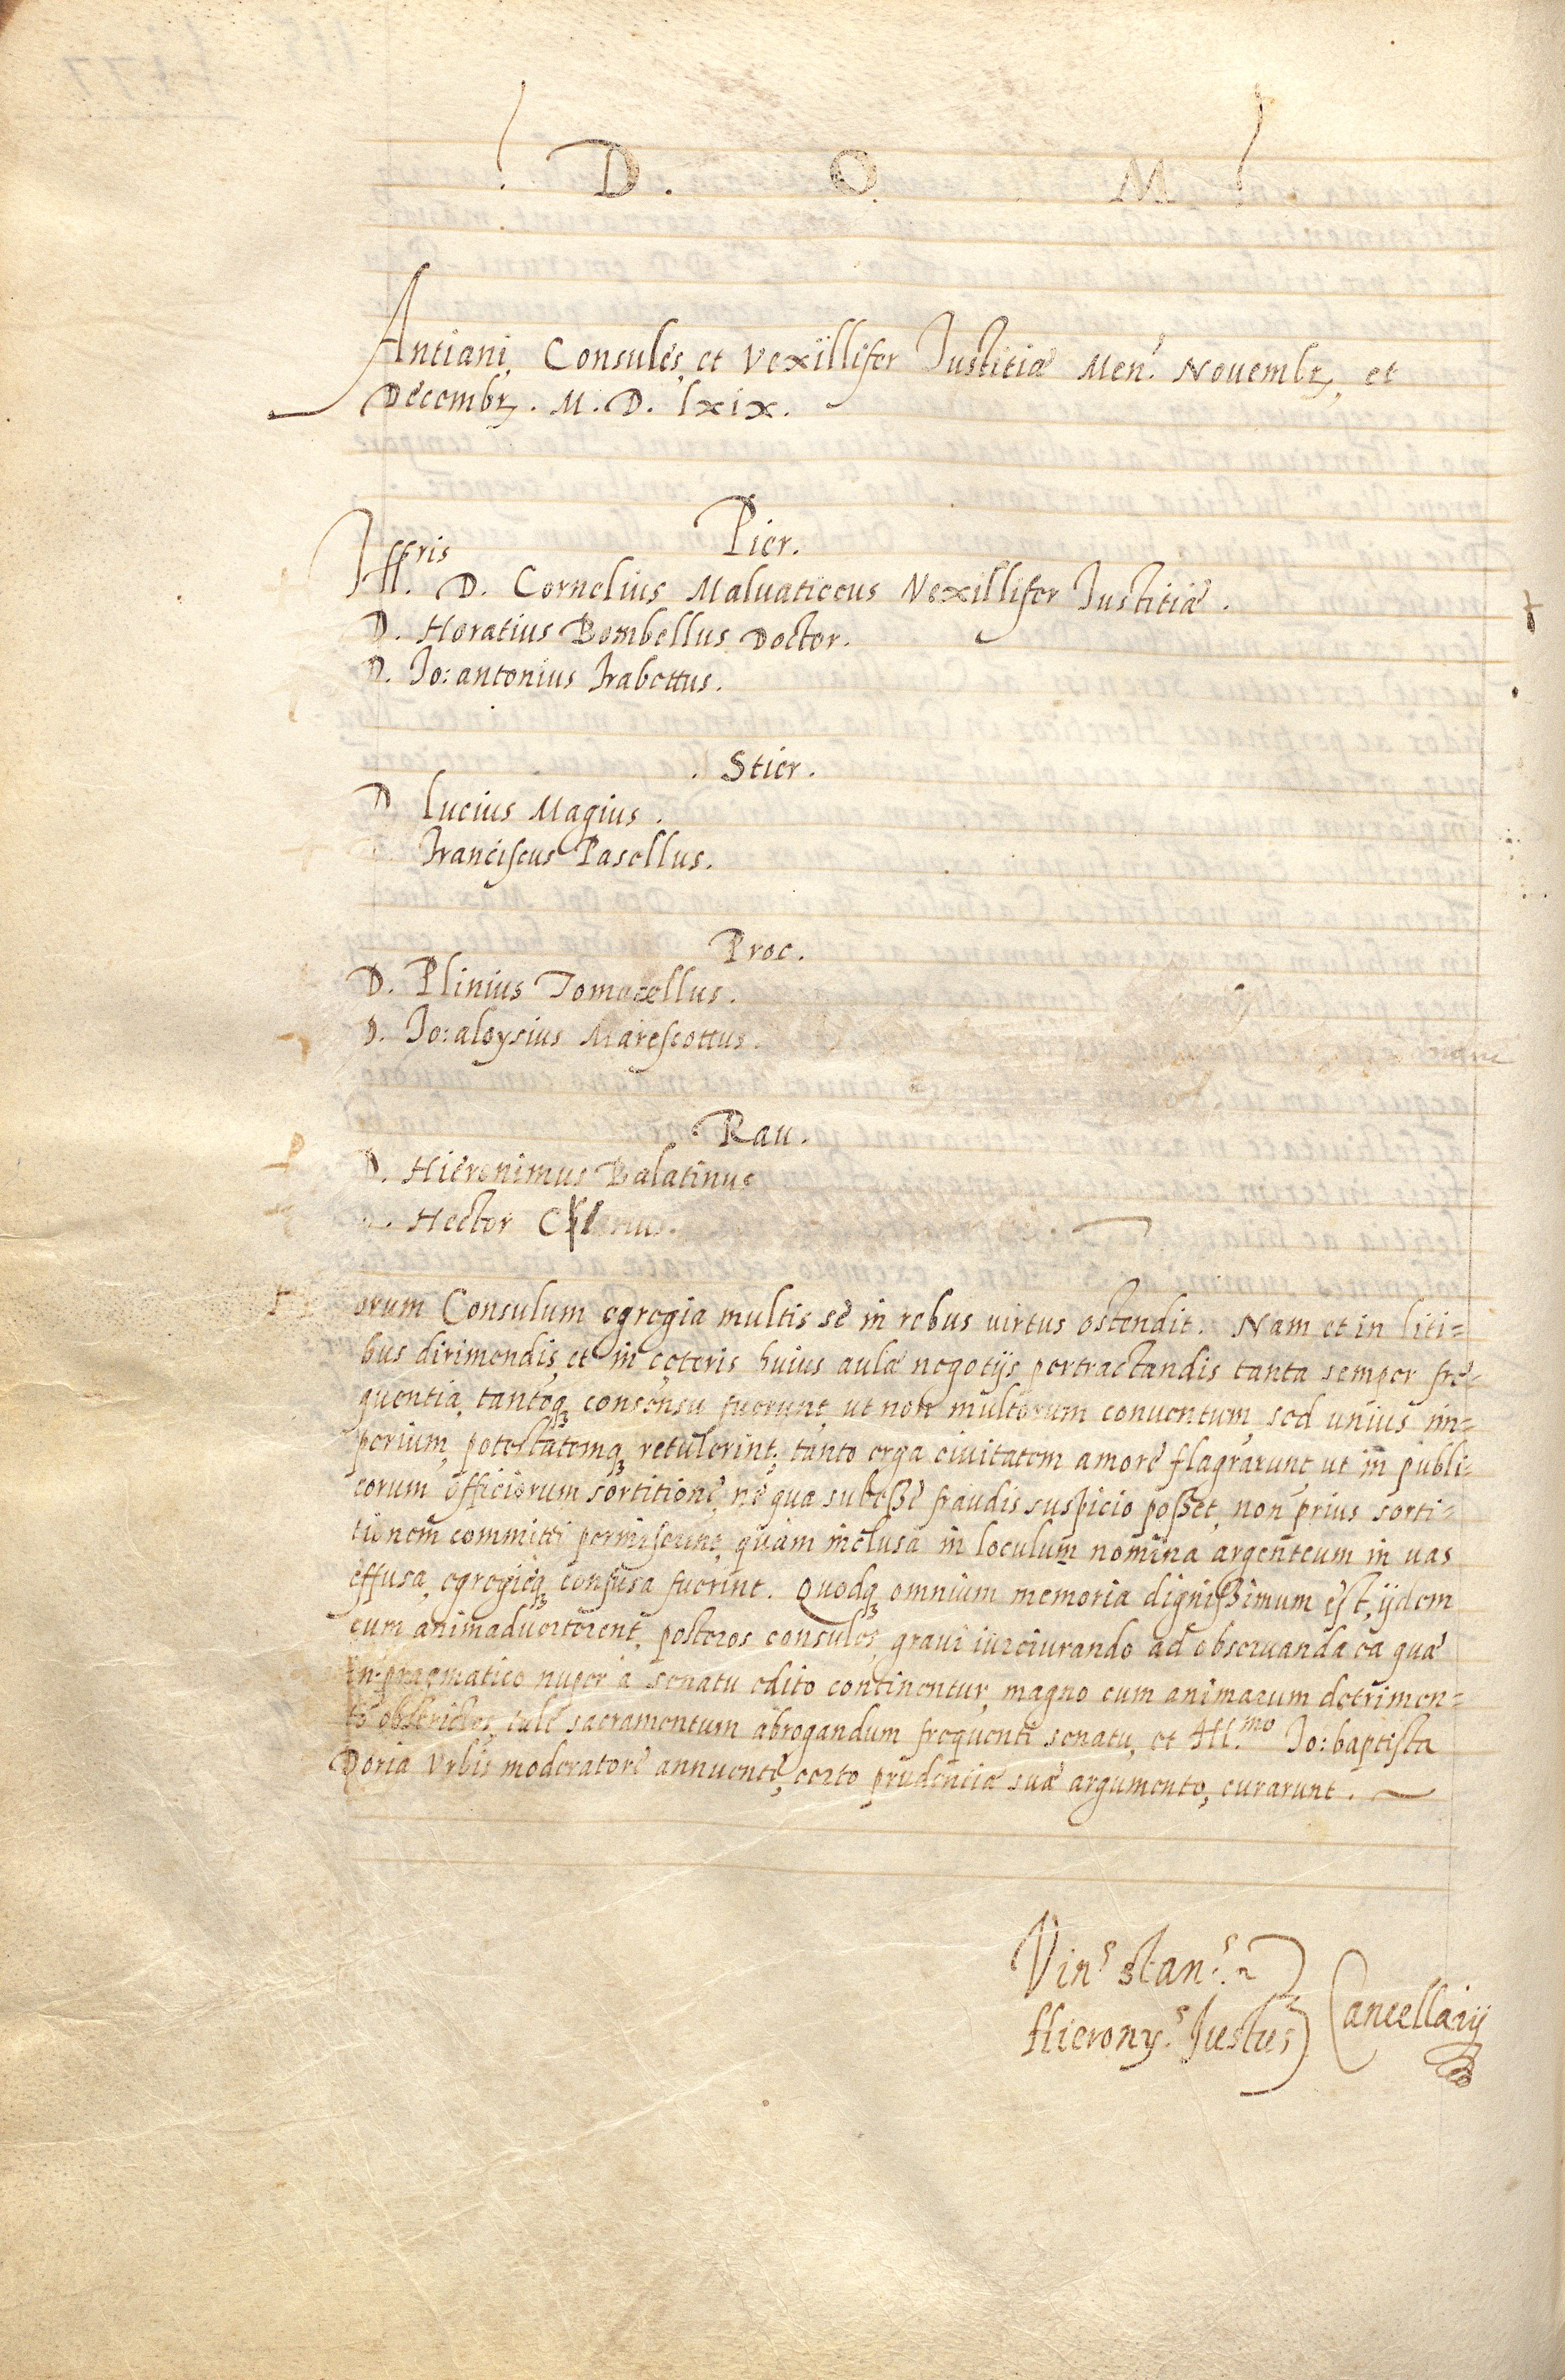 D. O. M.
Antiani, Consules, et Vexillifer Iustitiæ Men.s Nouembr., et
Decembr. M. D. lxix.
Pier.
Ill.ris D. Cornelius Maluaticcus Vexillifer Iustitiæ.
D. Horatius Bombellus Doctor.
D. Io: antonius Frabettus.
. Stier.
D. Lucius Magius.
Franciscus Pasellus.
Proc.
D. Plinius Tomacellus.
D. Io: aloysius Marescottus.
. Rau.
D. Hieronimus Balatinus
Hector
orum Consulum egregia multis se in rebus uirtus ostendit. Nam et in liti=
bus dirimendis, et in cęteris huius aulæ negotijs pertractandis tanta semper fre=
quentia, tantoq; consensu fuerunt, ut non multorum conuentum, sed unius im=
perium, potestatemq; retulerint; tanto erga ciuitatem amore flagrarunt, ut in publi=
corum officiorum sortitione, ne qua subesse fraudis suspicio posset, non prius sorti=
tionem committi permiserint, quàm inclusa in loculum nomina argenteum in uas
effusa, egregieq; confusa fuerint. Quodq; omnium memoria dignissimum est, ijdem
cum animaduerterent, posteros consules, graui iureiurando ad obseruanda ea quæ
in pragmatico nuper à senatu edito continentur, magno cum animarum detrimen=
to obstrictos, tale sacramentum abrogandum frequenti senatu, et Ill.mo Io: baptista
Doria Vrbis moderatore annuente, certo prudentiæ suæ argumento, curarunt.
Vin.s Stan.s
Hierony.s Iustus
Cancellarij